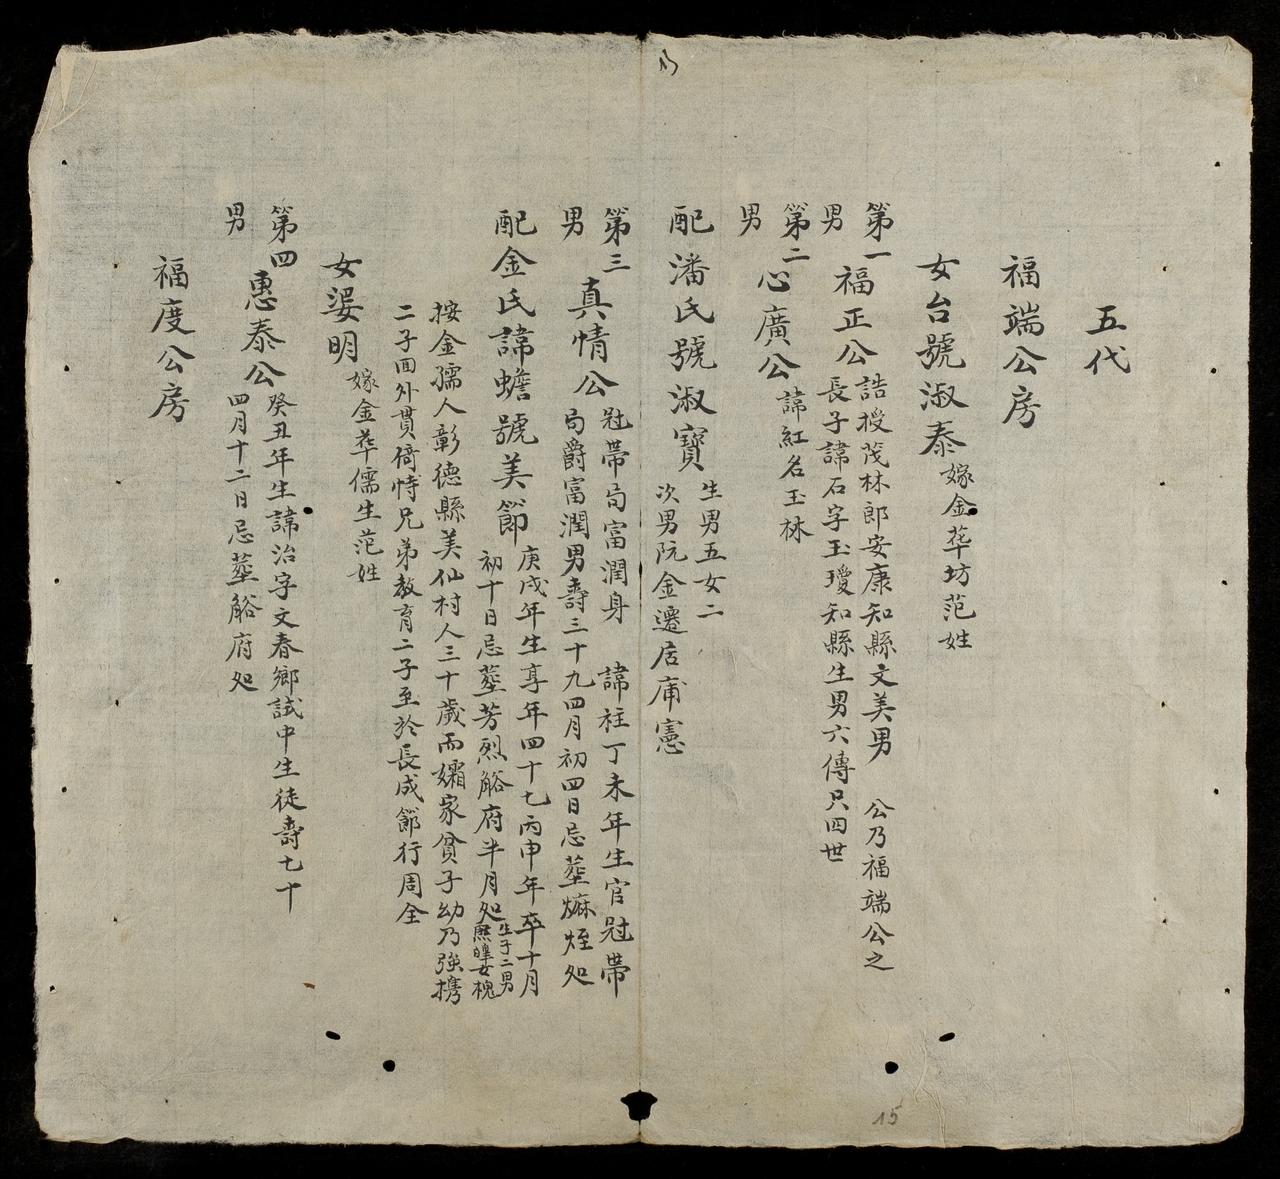 五代
福端公房
女台號淑泰
嫁金華坊范姓
第一
男
福正公
誥授茂林郎安康知縣文美男 公乃福端公之
長子諱石字玉瓊知縣生男六傳只四世
第二
男
心廣公
諱紅名玉林
配潘氏號淑寶
生男五女二
次男阮金遷居甫憲
第三
男
真情公
冠帶局富潤身 諱柱丁未年生官冠帶
局爵富潤男壽三十九四月初四日忌塟𤐝烓処
配金氏諱蟾號美節
庚戌年生享年四十七丙申年卒十月
初十日忌塟芳烈𧯄府半月処
生子二男
熈皥女槐
按金孺人彰德縣美仙村人三十歲而孀家貧子幼乃強携
二子回外貫倚恃兄弟教育二子至於長成節行周全
女𡝕明
嫁金華儒生范姓
第四
男
惠泰公
癸丑年生諱治字文春鄉試中生徒壽七十
四月十二日忌塟𧯄府処
福度公房
15